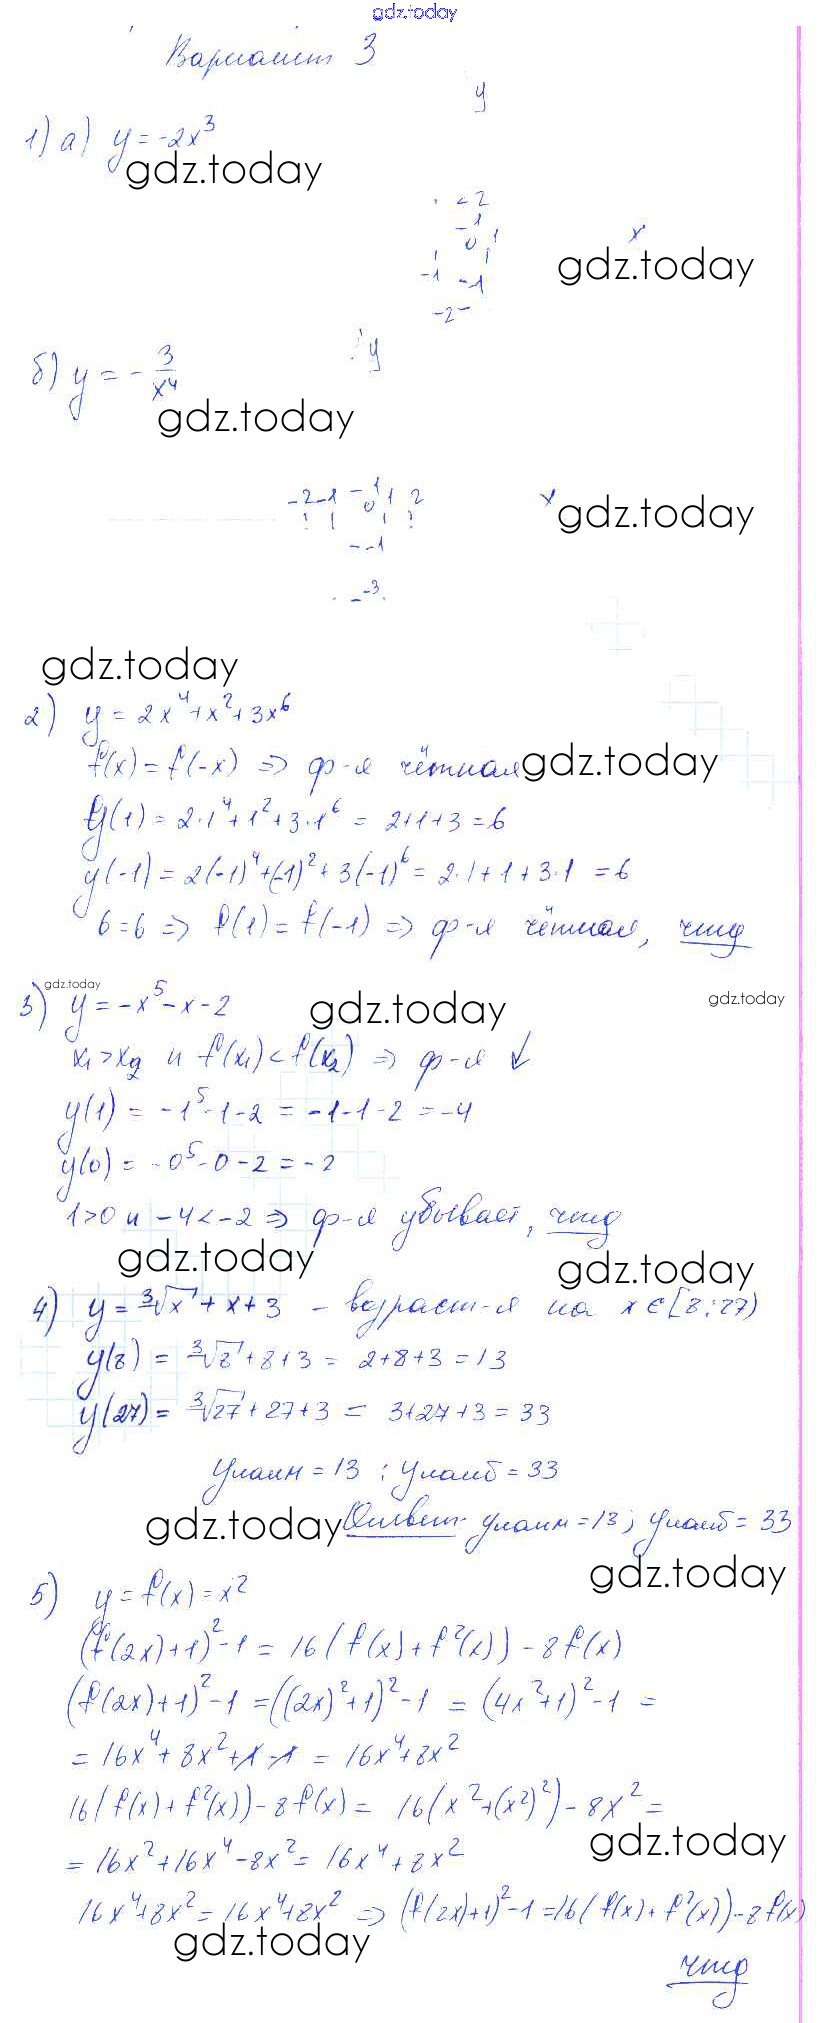 gdz.today
Вариант 3
y
1) а) y = -2x³
gdz.today
2
-1
0 1
x
gdz.today
-1 -1
-2
б) y = - 3/x⁴
y
gdz.today
-2 -1 -1 0 1 2
x
gdz.today
-1
-3
gdz.today
2) y = 2x⁴+x²+3x⁶
f(x) = f(-x) => ф-я чётная
gdz.today
y(1) = 2·1⁴+1²+3·1⁶ = 2+1+3 = 6
y(-1) = 2(-1)⁴+(-1)²+3(-1)⁶ = 2·1+1+3·1 = 6
6 = 6 => f(1) = f(-1) => ф-я чётная, чтд
gdz.today
3) y = -x⁵-x-2
gdz.today
gdz.today
x₁ > x₂ и f(x₁) < f(x₂) => ф-я ↓
y(1) = -1⁵-1-2 = -1-1-2 = -4
y(0) = -0⁵-0-2 = -2
1>0 и -4<-2 => ф-я убывает, чтд
gdz.today
gdz.today
4) y = ³√x + x + 3 - возраст-я на x ∈ [8;27)
y(8) = ³√8 + 8 + 3 = 2+8+3 = 13
y(27) = ³√27 + 27 + 3 = 3+27+3 = 33
yнаим = 13 ; yнаиб = 33
gdz.today
Ответ: yнаим = 13; yнаиб = 33
gdz.today
5) y = f(x) = x²
(f(2x)+1)²-1 = 16(f(x)+f²(x)) - 8f(x)
(f(2x)+1)²-1 = ((2x)²+1)²-1 = (4x²+1)²-1 =
= 16x⁴+8x²+1-1 = 16x⁴+8x²
16(f(x)+f²(x))-8f(x) = 16(x²+(x²)²)-8x² =
gdz.today
= 16x²+16x⁴-8x² = 16x⁴+8x²
16x⁴+8x² = 16x⁴+8x² => (f(2x)+1)²-1 = 16(f(x)+f²(x))-8f(x)
gdz.today
чтд